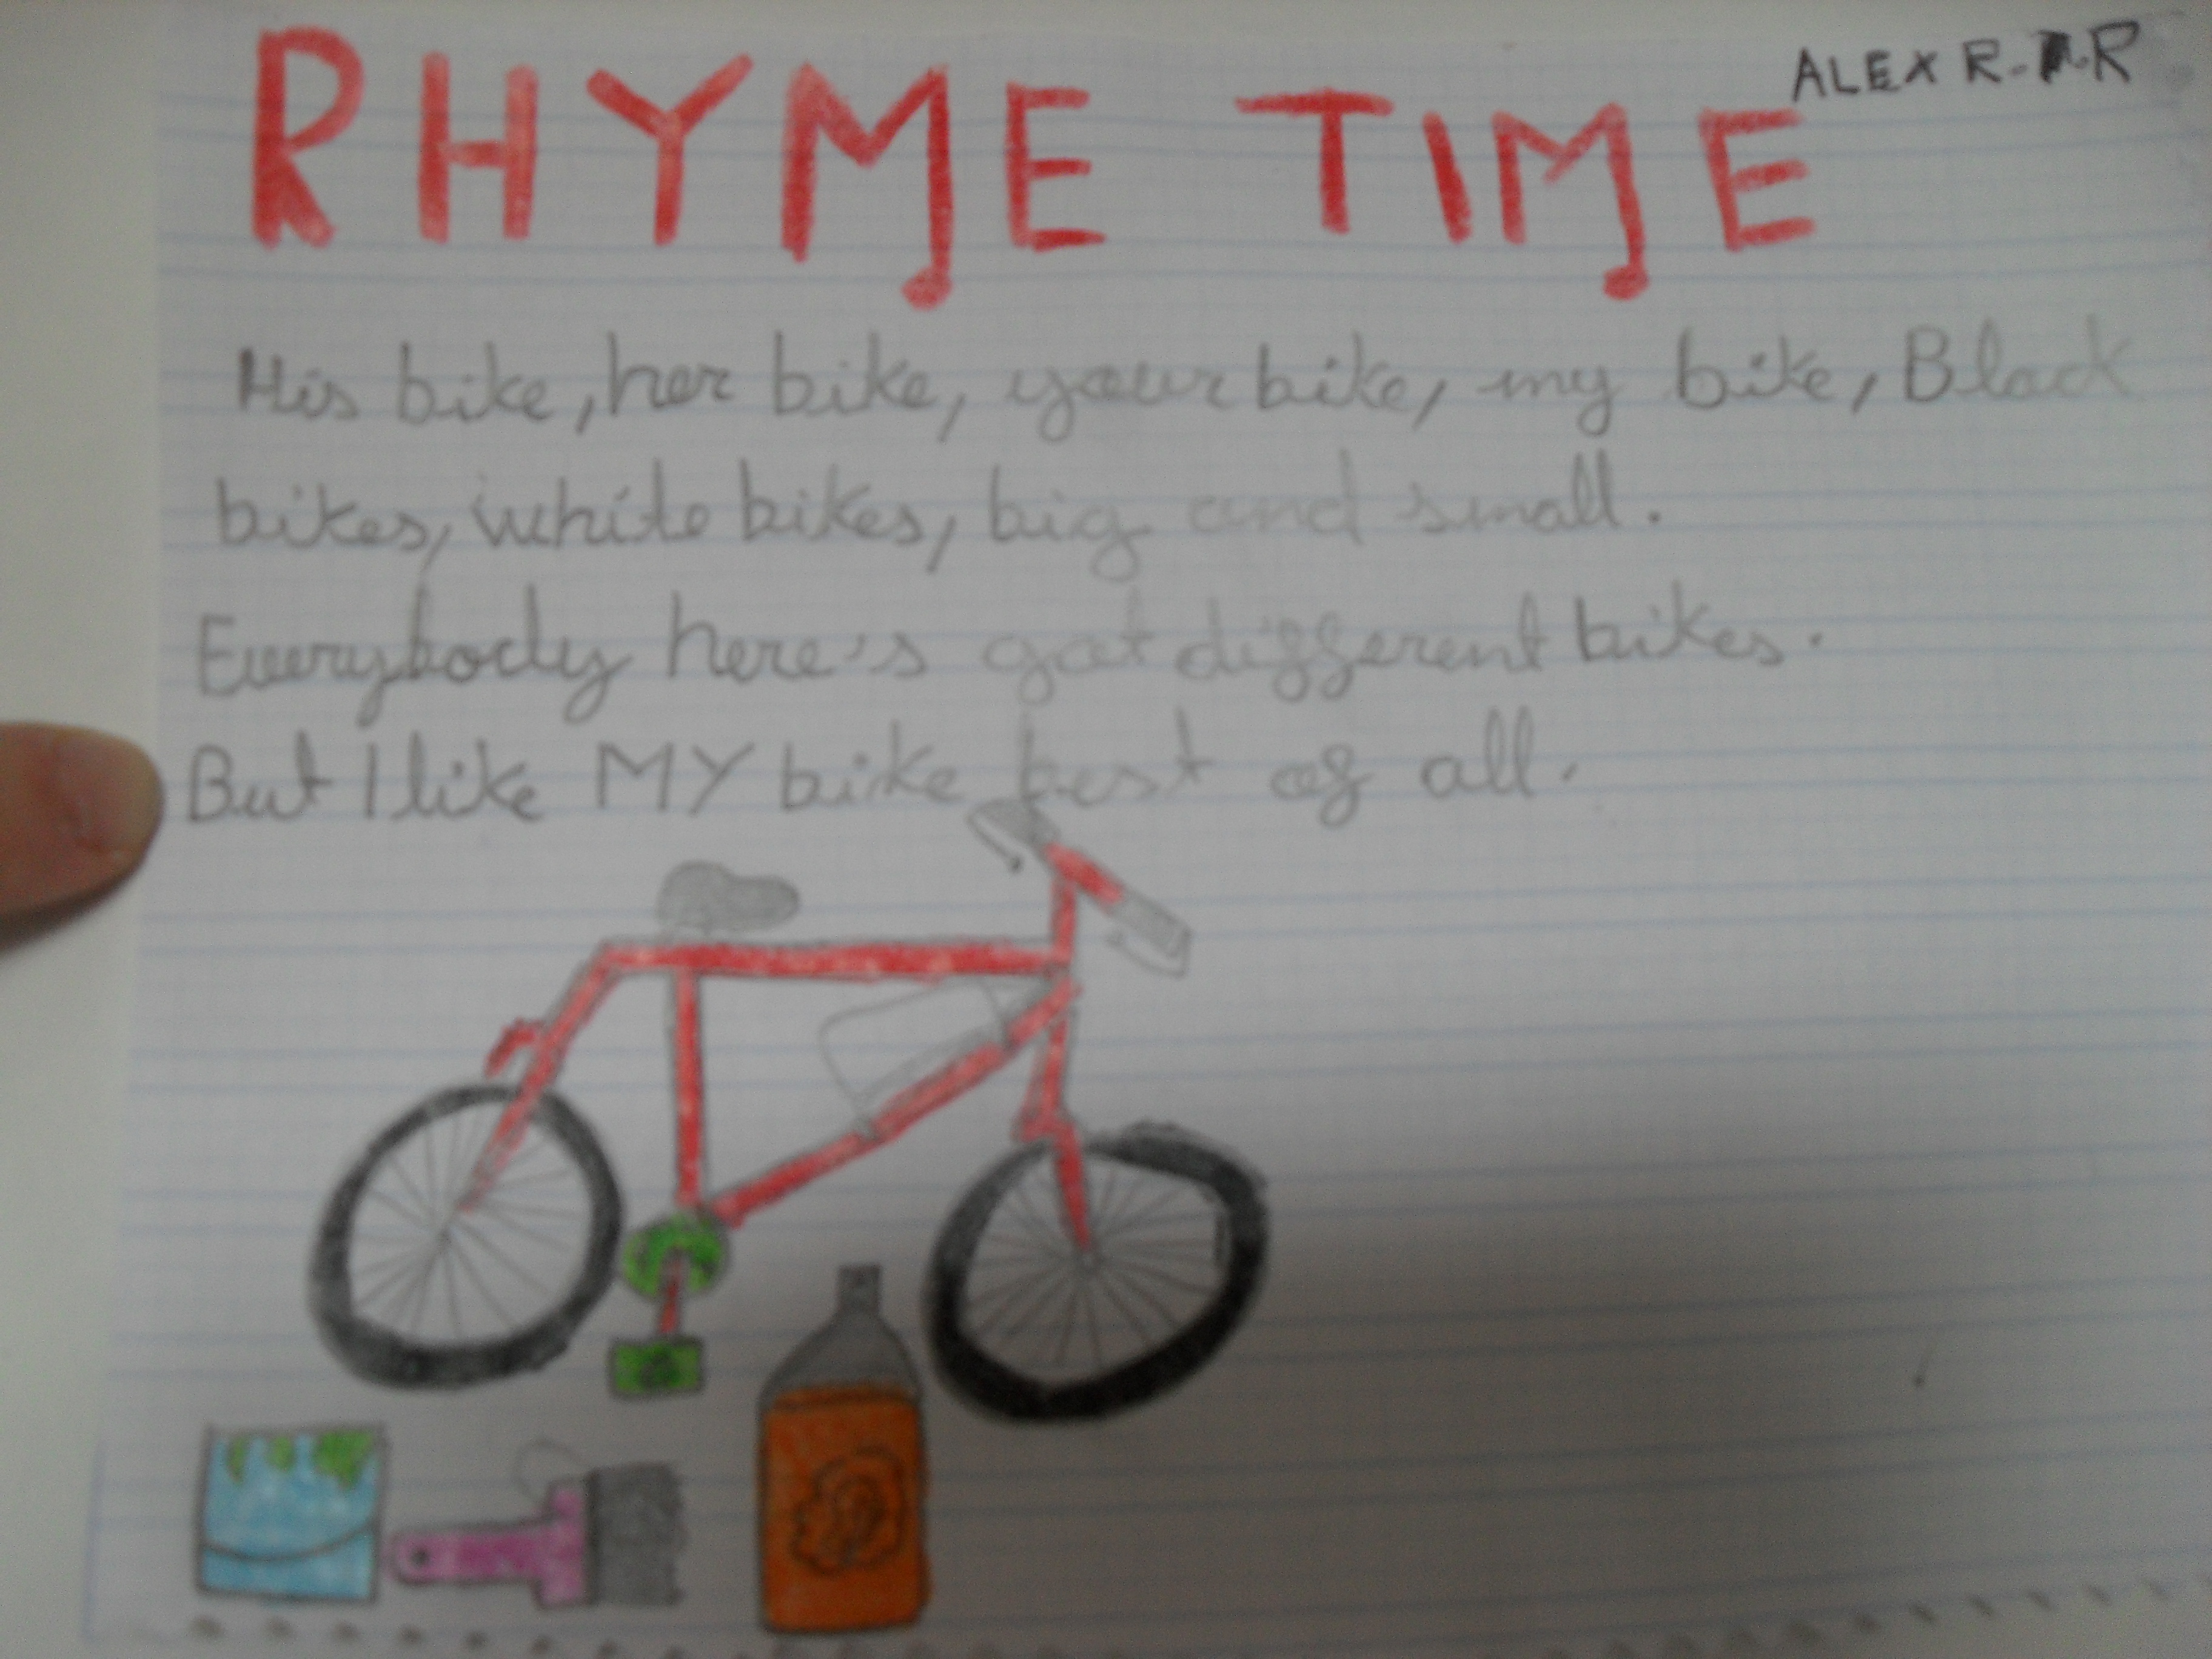 ALEX R. R
RHYME TIME
His bike, her bike, your bike, my bike, Black
bikes, white bikes, big and small.
Everybody here's got different bikes.
But I like MY bike best of all.